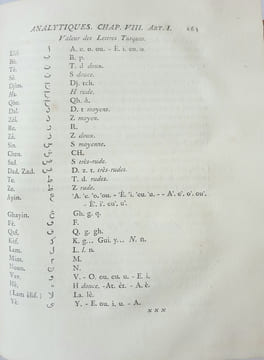 ANALYTIQUES. CHAP. VIII. ART. I. 463
Valeur des Lettres Turques.
Elif. ا A. e. o. ou. - E. i. eu. u.
Bé. ب B. p.
Té. ت T. d doux.
Sé. ث S douce.
Djim. ج Dj. tch.
Hu. ح H rude.
Qhe. خ Qh. â.
Dal. د D. t moyens.
Zel. ذ Z. moyen.
Re. ر R.
Zé. ز Z. doux.
Sin. س S moyenne.
Chen. ش CH.
Sad. ص S très-rude.
Dad. Zad. ض D. z. t. très-rudes.
Te. ط T. d. rudes.
Ze. ظ Z. rude.
Ayin. ع
Ghayin. غ Gh. g. q.
Fé. ف F.
Qaf. ق Q. g. gh.
Kif. ك K. g... Gui. y... N. n.
Lam. ل L. l. n.
Mim. م M.
Noun. ن N.
Var. و V. - O. eu. u. - E. i.
Hé. ه H douce. - At. êt. - A. è.
(Lam élif.) لا La. lè.
Yé. ى Y. - E. ou. i. u. - A.
x x x